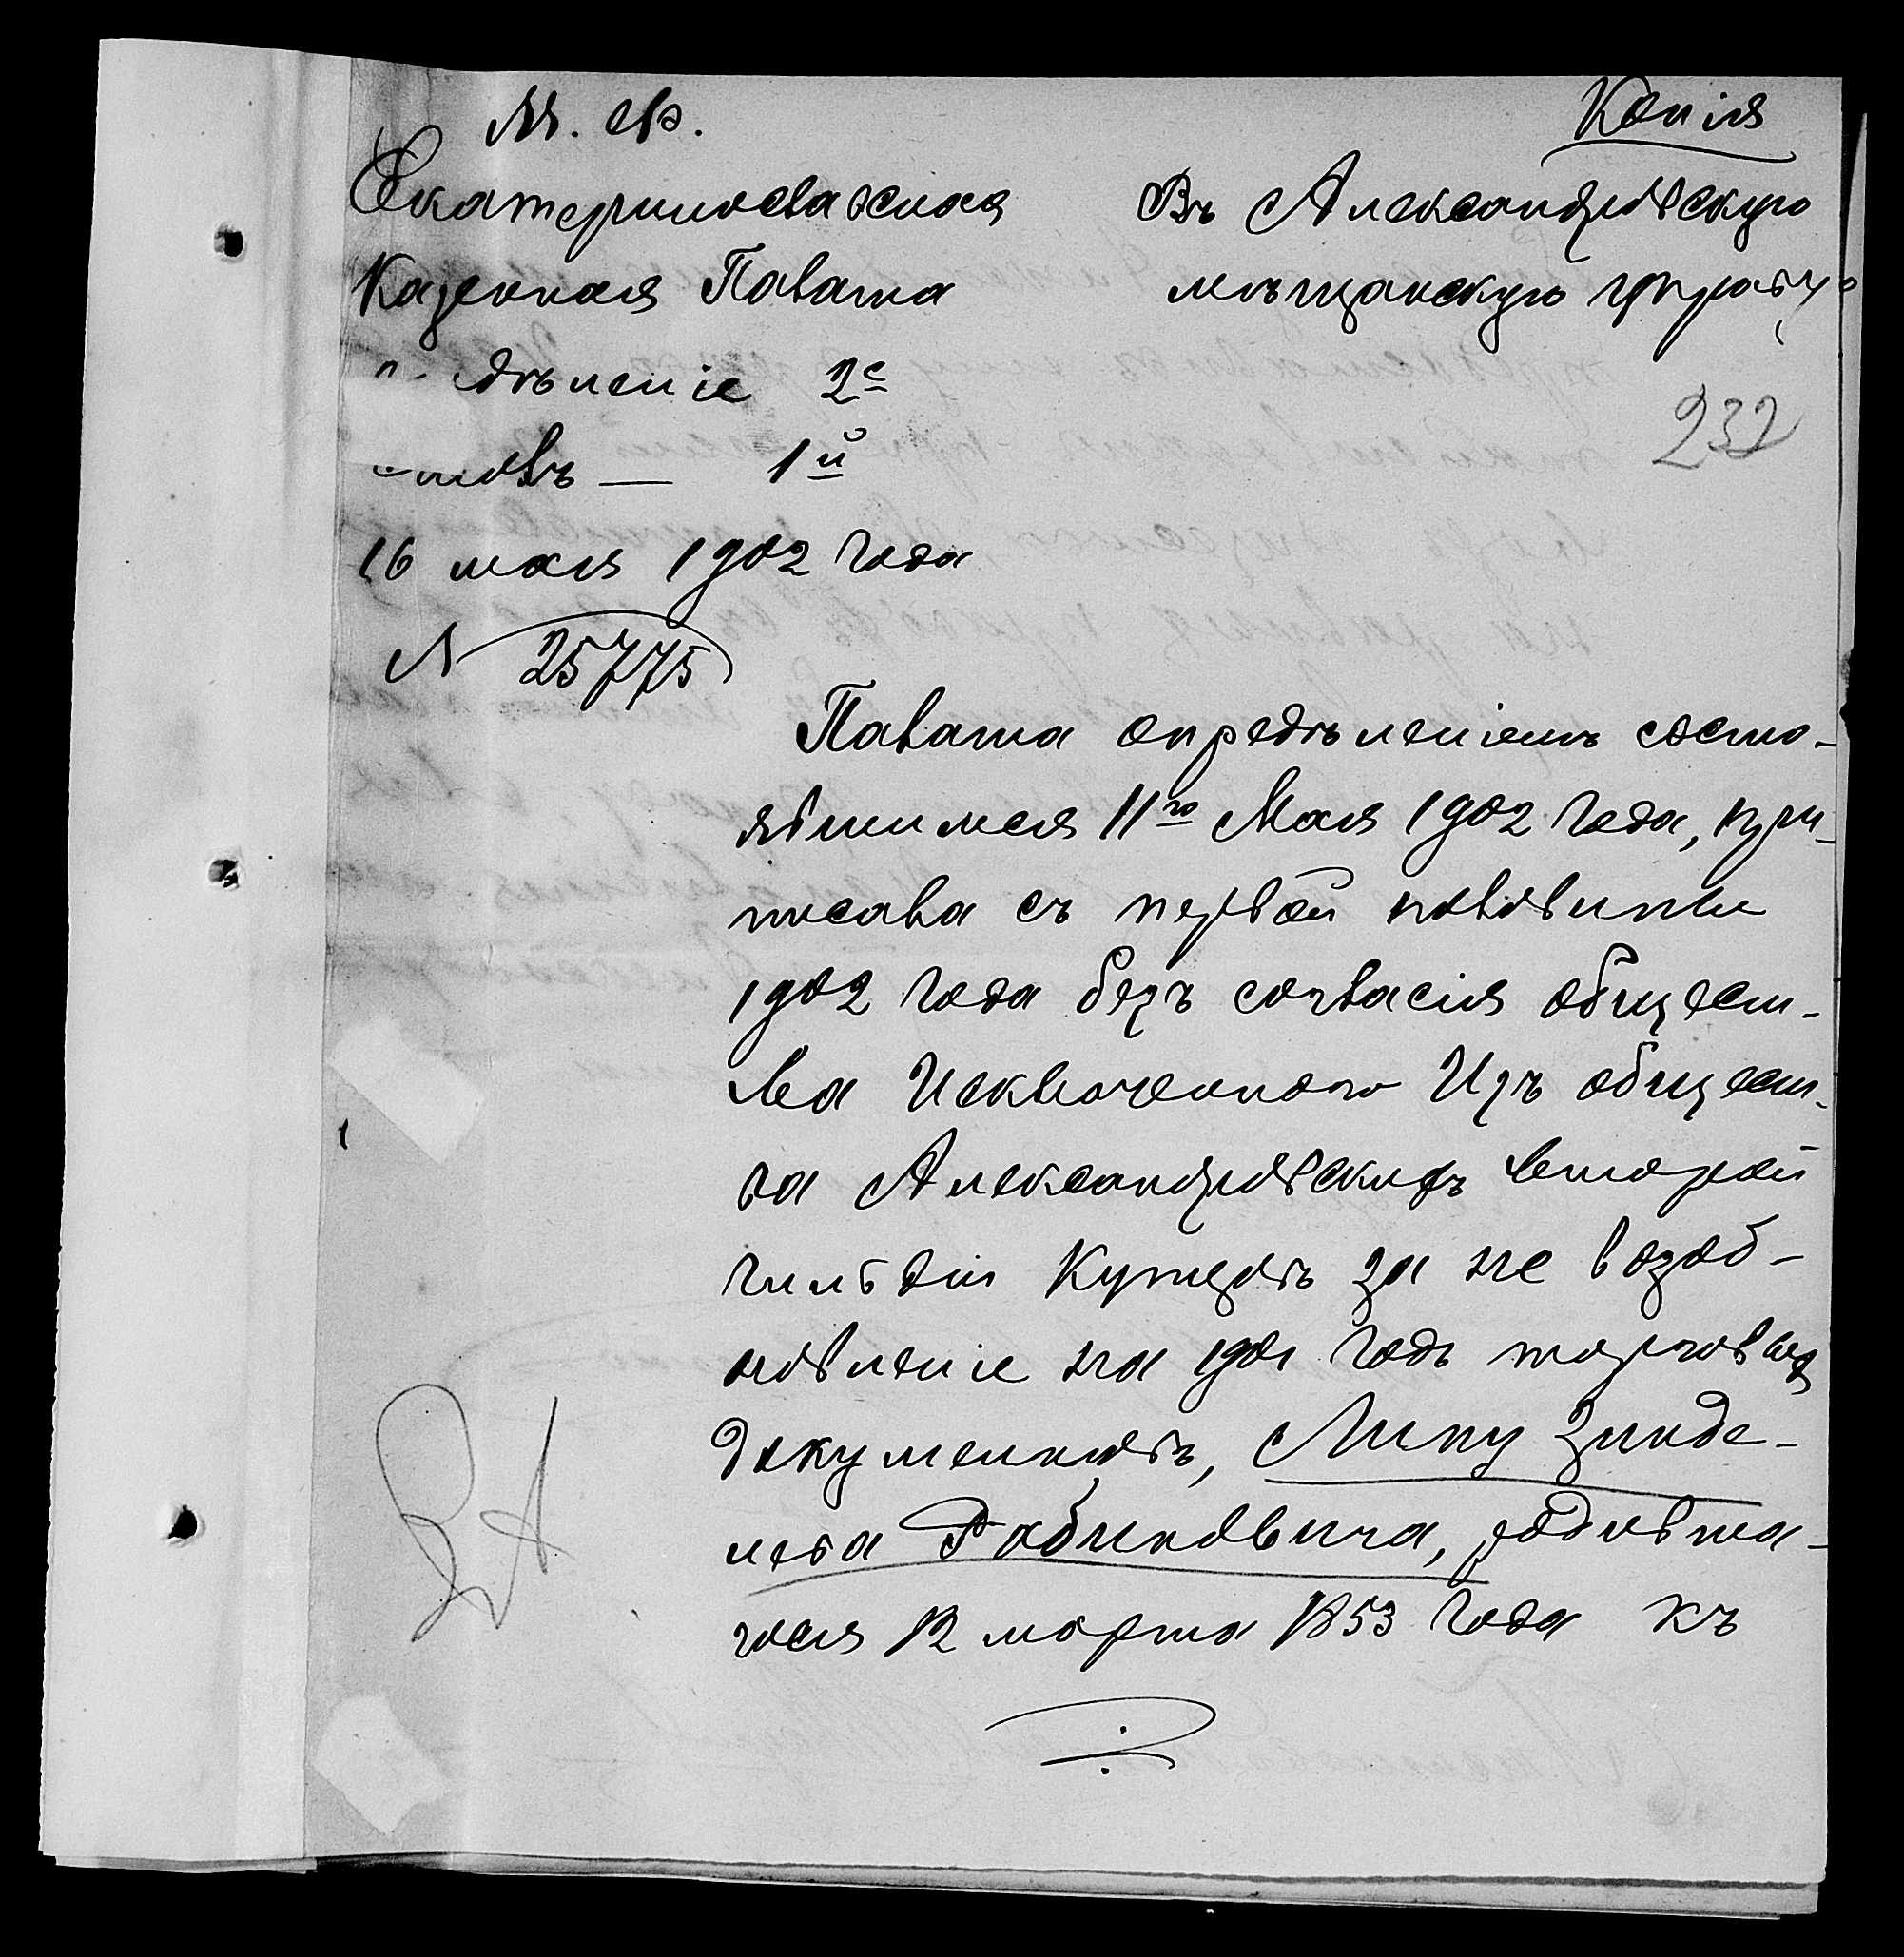 М. Ф.
Екатеринославская
Казенная Палата
дѣленіе 2е
столъ — 1й
16 мая 1902 года
№ 25775
Копія
Въ Александровскую
мѣщанскую управу
232
Палата опредѣленіемъ состо-
явшимся 11го Мая 1902 года, при-
писала съ первой половины
1902 года безъ согласія общест-
ва Исключеннаго Изъ общест-
ва Александровскихъ второй
гильдіи Купцовъ за не возоб-
новленіе на 1901 годъ торговыхъ
документовъ, Липу Зинде-
лева Рабиновича, родивша-
гося 12 марта 1853 года къ